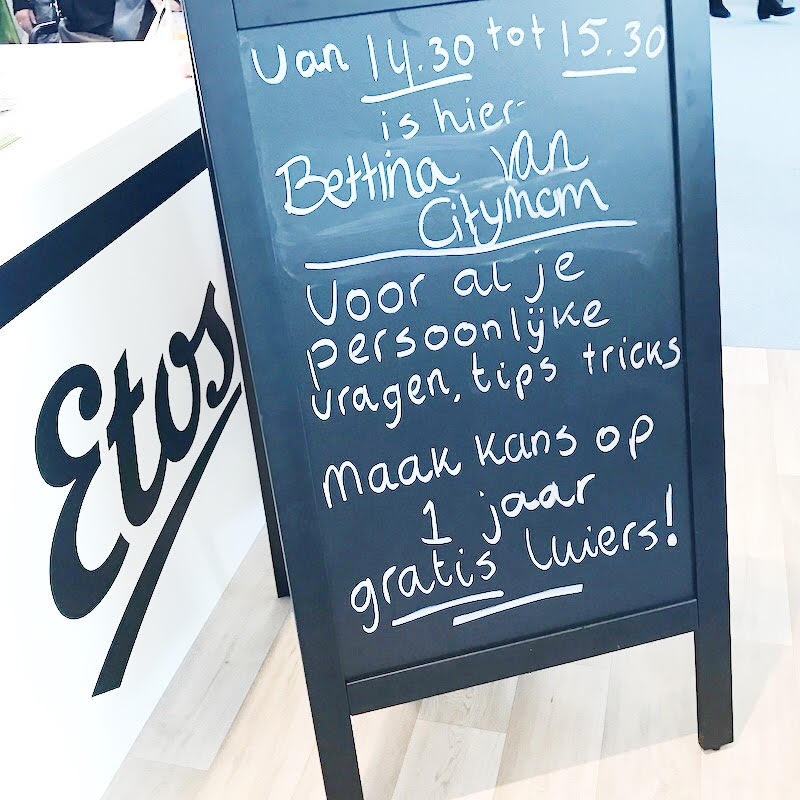 Van 14.30 tot 15.30
is hier
Bettina van
Citymom
Voor al je
persoonlijke
vragen, tips tricks
Maak kans op
1 jaar
gratis luiers!
Etos